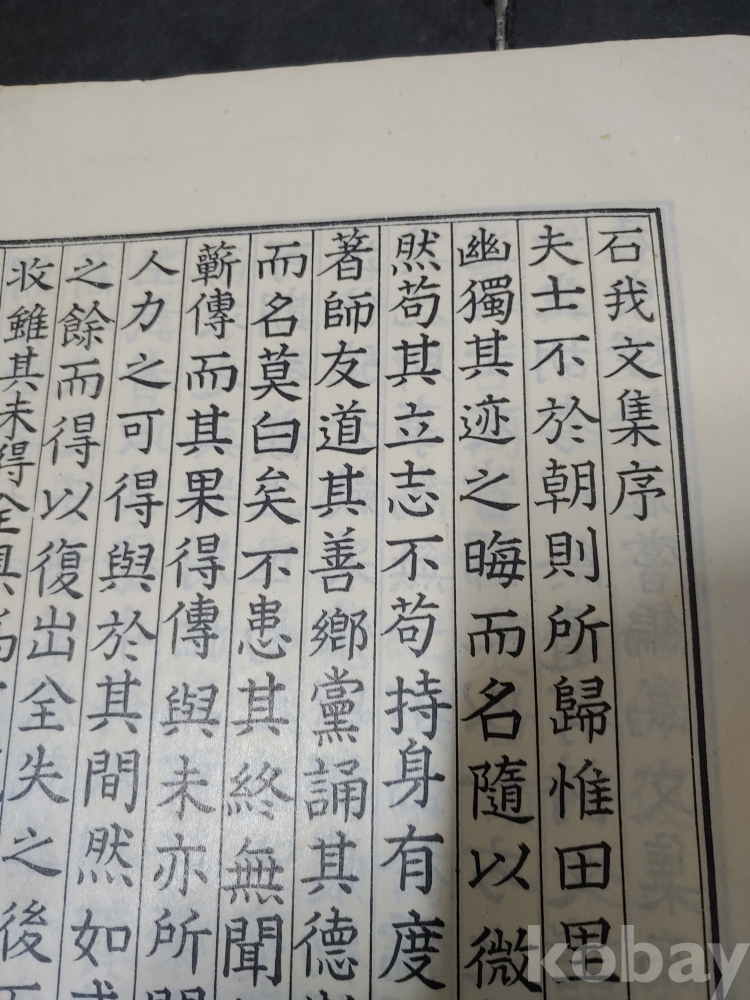 石我文集序
夫士不於朝則所歸惟田里
幽獨其迹之晦而名隨以微
然苟其立志不苟持身有度
著師友道其善鄉黨誦其德
而名莫白矣不患其終無聞
蘄傳而其果得傳與未亦所
人力之可得與於其間然如
之餘而得以復出全失之後
收雖其未得全具
kobay